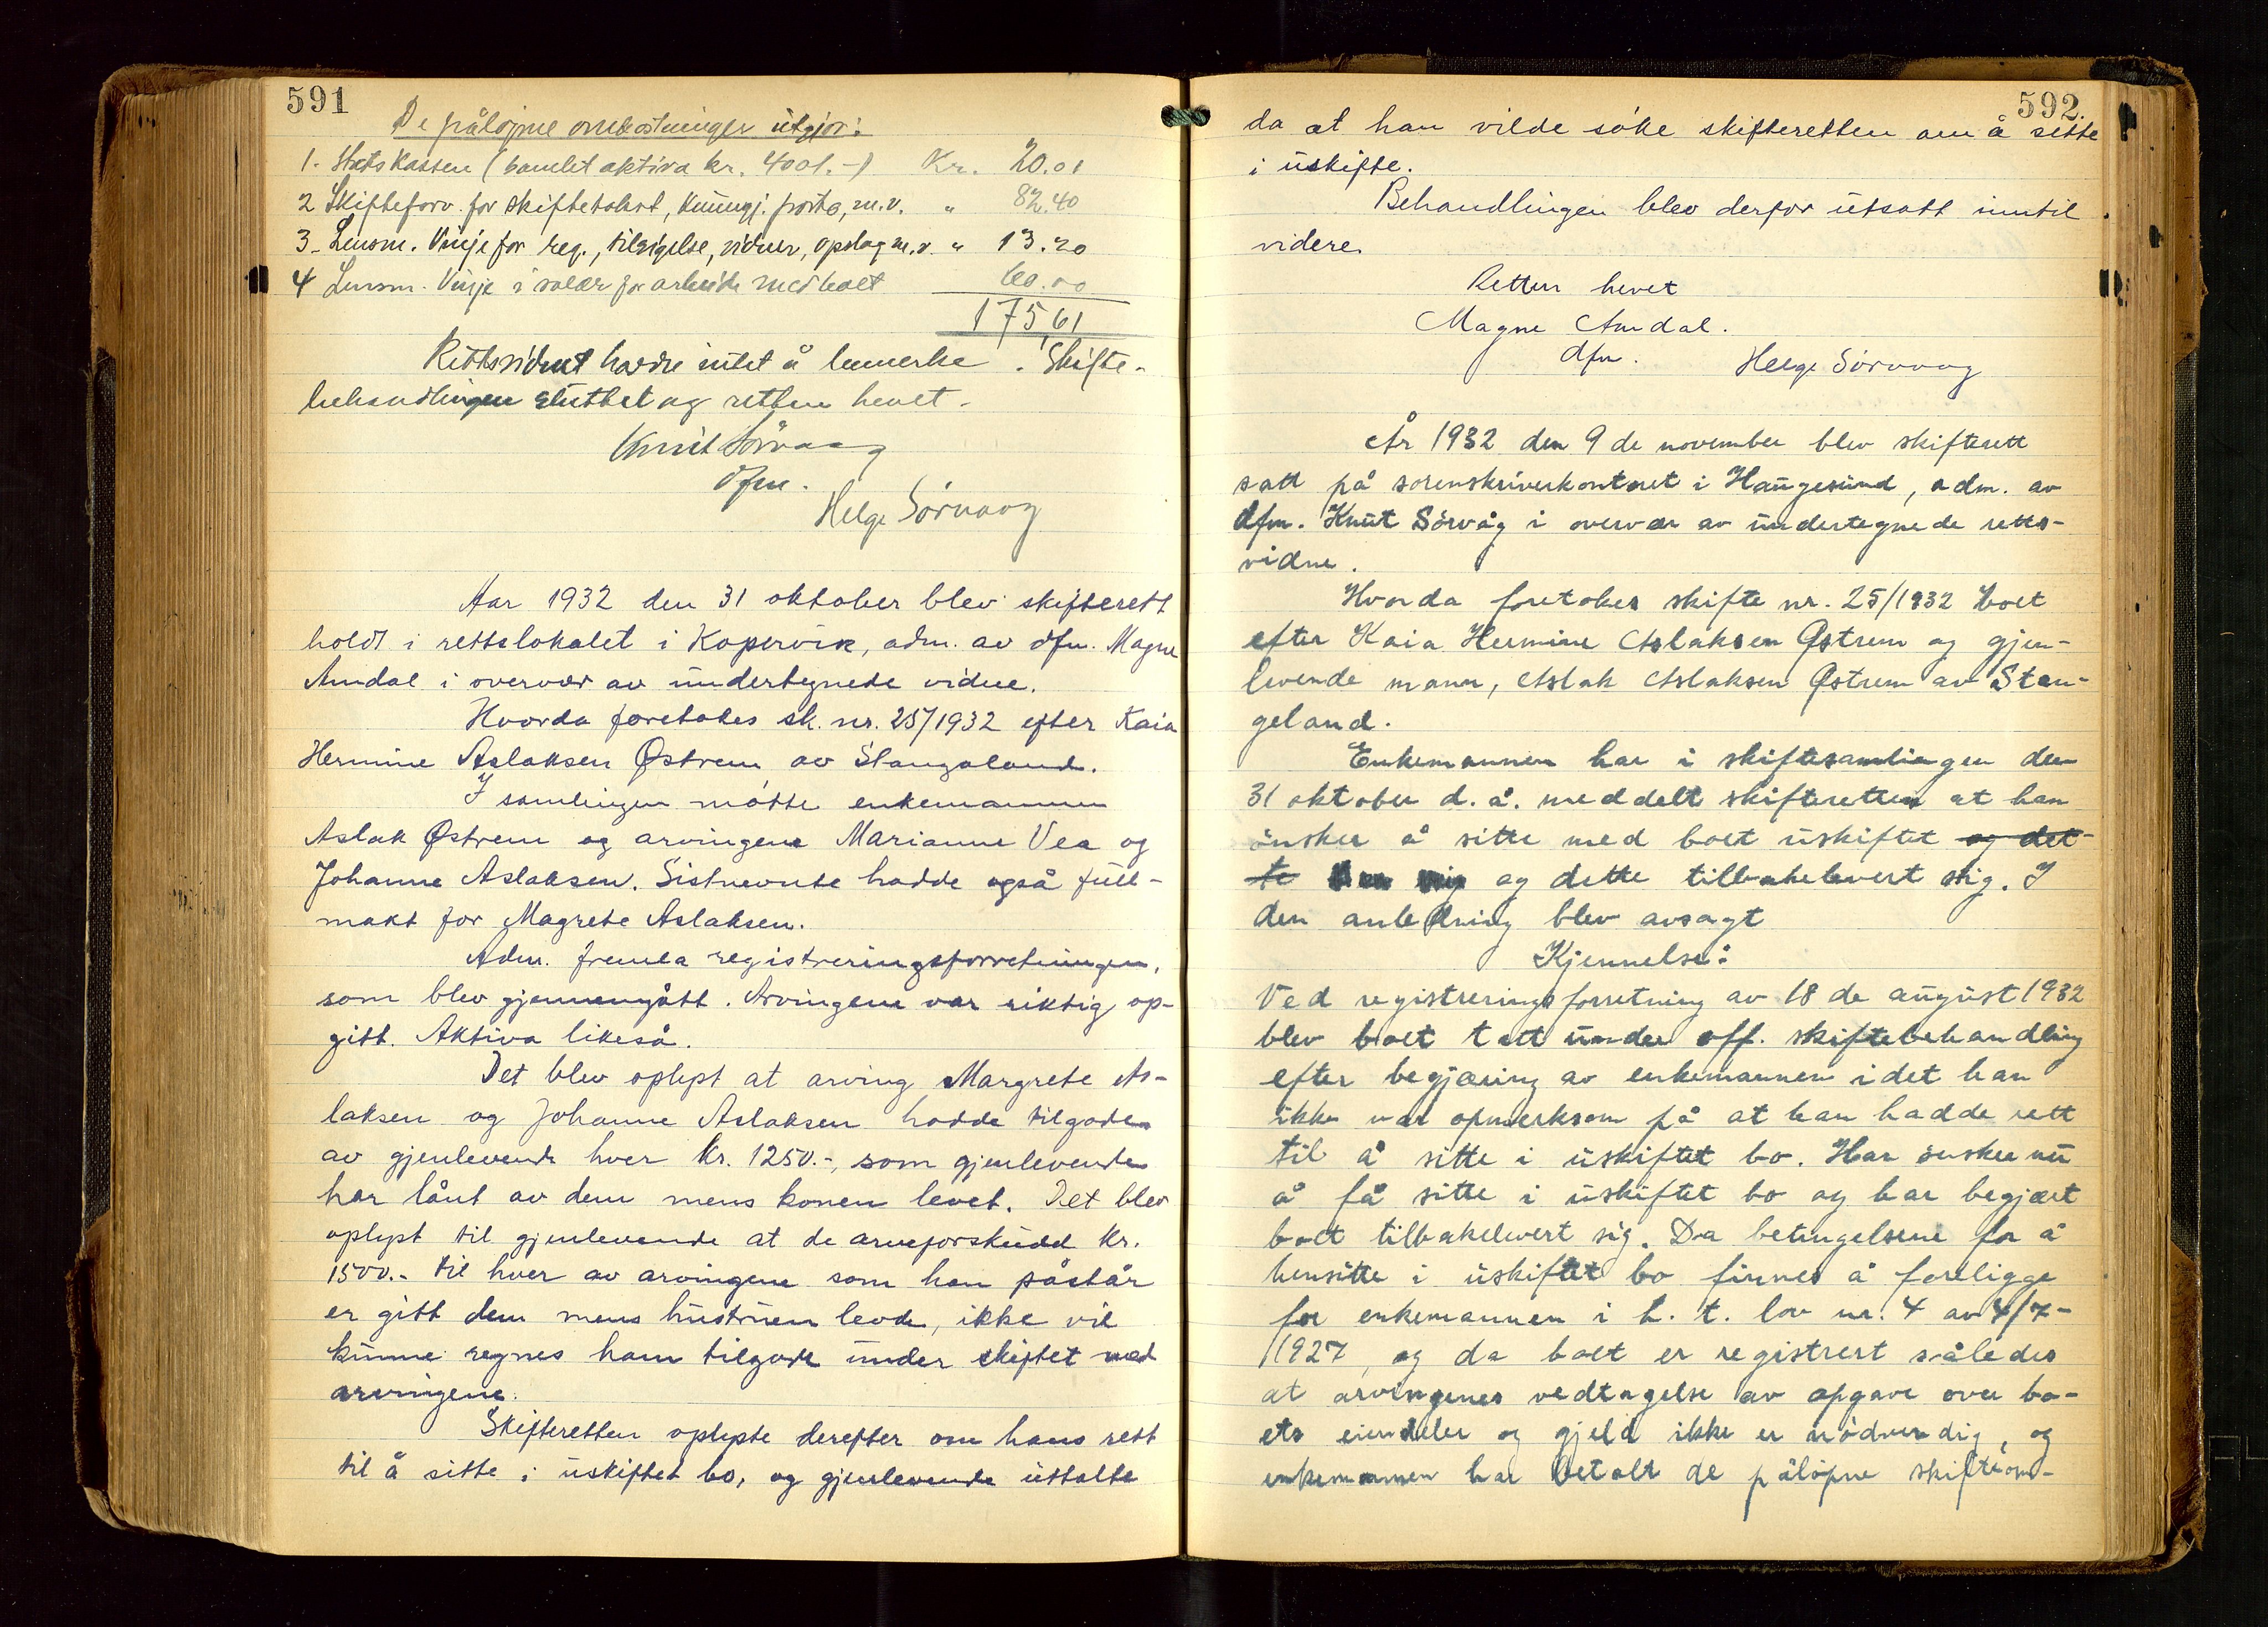 591
De påløpne omkostninger utgjør:
1. Statskassen (samlet aktiva kr. 4001.-) Kr. 20.01
2 Skifteforv. for skiftetakst, kunngj. porto, m.v. " 82.40
3. Lensm. Vinje for reg., tilsigelse, vidner, opslag m.v. " 13.20
4 Lensm. Vinje i salær for arbeide med boet 60.00
175,61
Rettsvidnet hadde intet å bemerke. Skifte-
behandlingen sluttet og retten hevet.
Knut Sörvaag
dfm.
Helge Sörvaag
Aar 1932 den 31 oktober blev skifterett
holdt i rettslokalet i Kopervik, adm. av dfm. Magne
Amdal i overvær av undertegnede vidne.
Hvorda foretokes sk. nr. 25/1932 efter Kaia
Hermine Aslaksen Østrem av Stangaland.
I samlingen møtte enkemannen
Aslak Østrem og arvingene Marianne Vea og
Johanne Aslaksen. Sistnevnte hadde også full-
makt for Magrete Aslaksen.
Adm. fremla registreringsforretningen,
som blev gjennemgått. Arvingene var riktig op-
gitt. Aktiva likeså.
Det blev oplyst at arving Margrete As-
laksen og Johanne Aslaksen hadde tilgode
av gjenlevende hver kr. 1250.-, som gjenlevende
har lånt av dem mens konen levet. Det blev
oplyst til gjenlevende at de arveforskudd kr.
1500.- til hver av arvingene som han påstår
er gitt dem mens hustruen levde, ikke vil
kunne regnes ham tilgode under skiftet med
arvingene.
Skifteretten oplyste derefter om hans rett
til å sitte i uskiftet bo, og gjenlevende uttalte
592.
da at han vilde söke skifteretten om å sitte
i uskifte.
Behandlingen blev derfor utsatt inntil
videre.
Retten hevet
Magne Amdal.
dfm.
Helge Sörvaag
År 1932 den 9 de november blev skifterett
satt på sorenskriverkontoret i Haugesund, adm. av
dfm. Knut Sörvåg i overvær av undertegnede retts-
vidne.
Hvorda foretokes skifte nr. 25/1932 boet
efter Kaia Hermine Aslaksen Østrem og gjen-
levende mann, Aslak Aslaksen Østrem av Stan-
geland.
Enkemannen har i skiftesamlingen den
31 oktober d. å. meddelt skifteretten at han
önsker å sitte med boet uskiftet og det-
te og dette tilbakelevert sig. I
den anledning blev avsagt
Kjennelse:
Ved registreringsforretning av 18 de august 1932
blev boet tatt under off. skiftebehandling
efter begjæring av enkemannen idet han
ikke var opmerksom på at han hadde rett
til å sitte i uskiftet bo. Han önsker nu
å få sitte i uskiftet bo og har begjært
boet tilbakelevert sig. Da betingelsene for å
hensitte i uskiftet bo finnes å foreligge
for enkemannen i h. t. lov nr. 4 av 4/7-
1927, og da boet er registrert således
at arvingenes vedtagelse av opgave over bo-
ets eiendeler og gjeld ikke er nödvendig, og
enkemannen har betalt de påløpne skifteom-